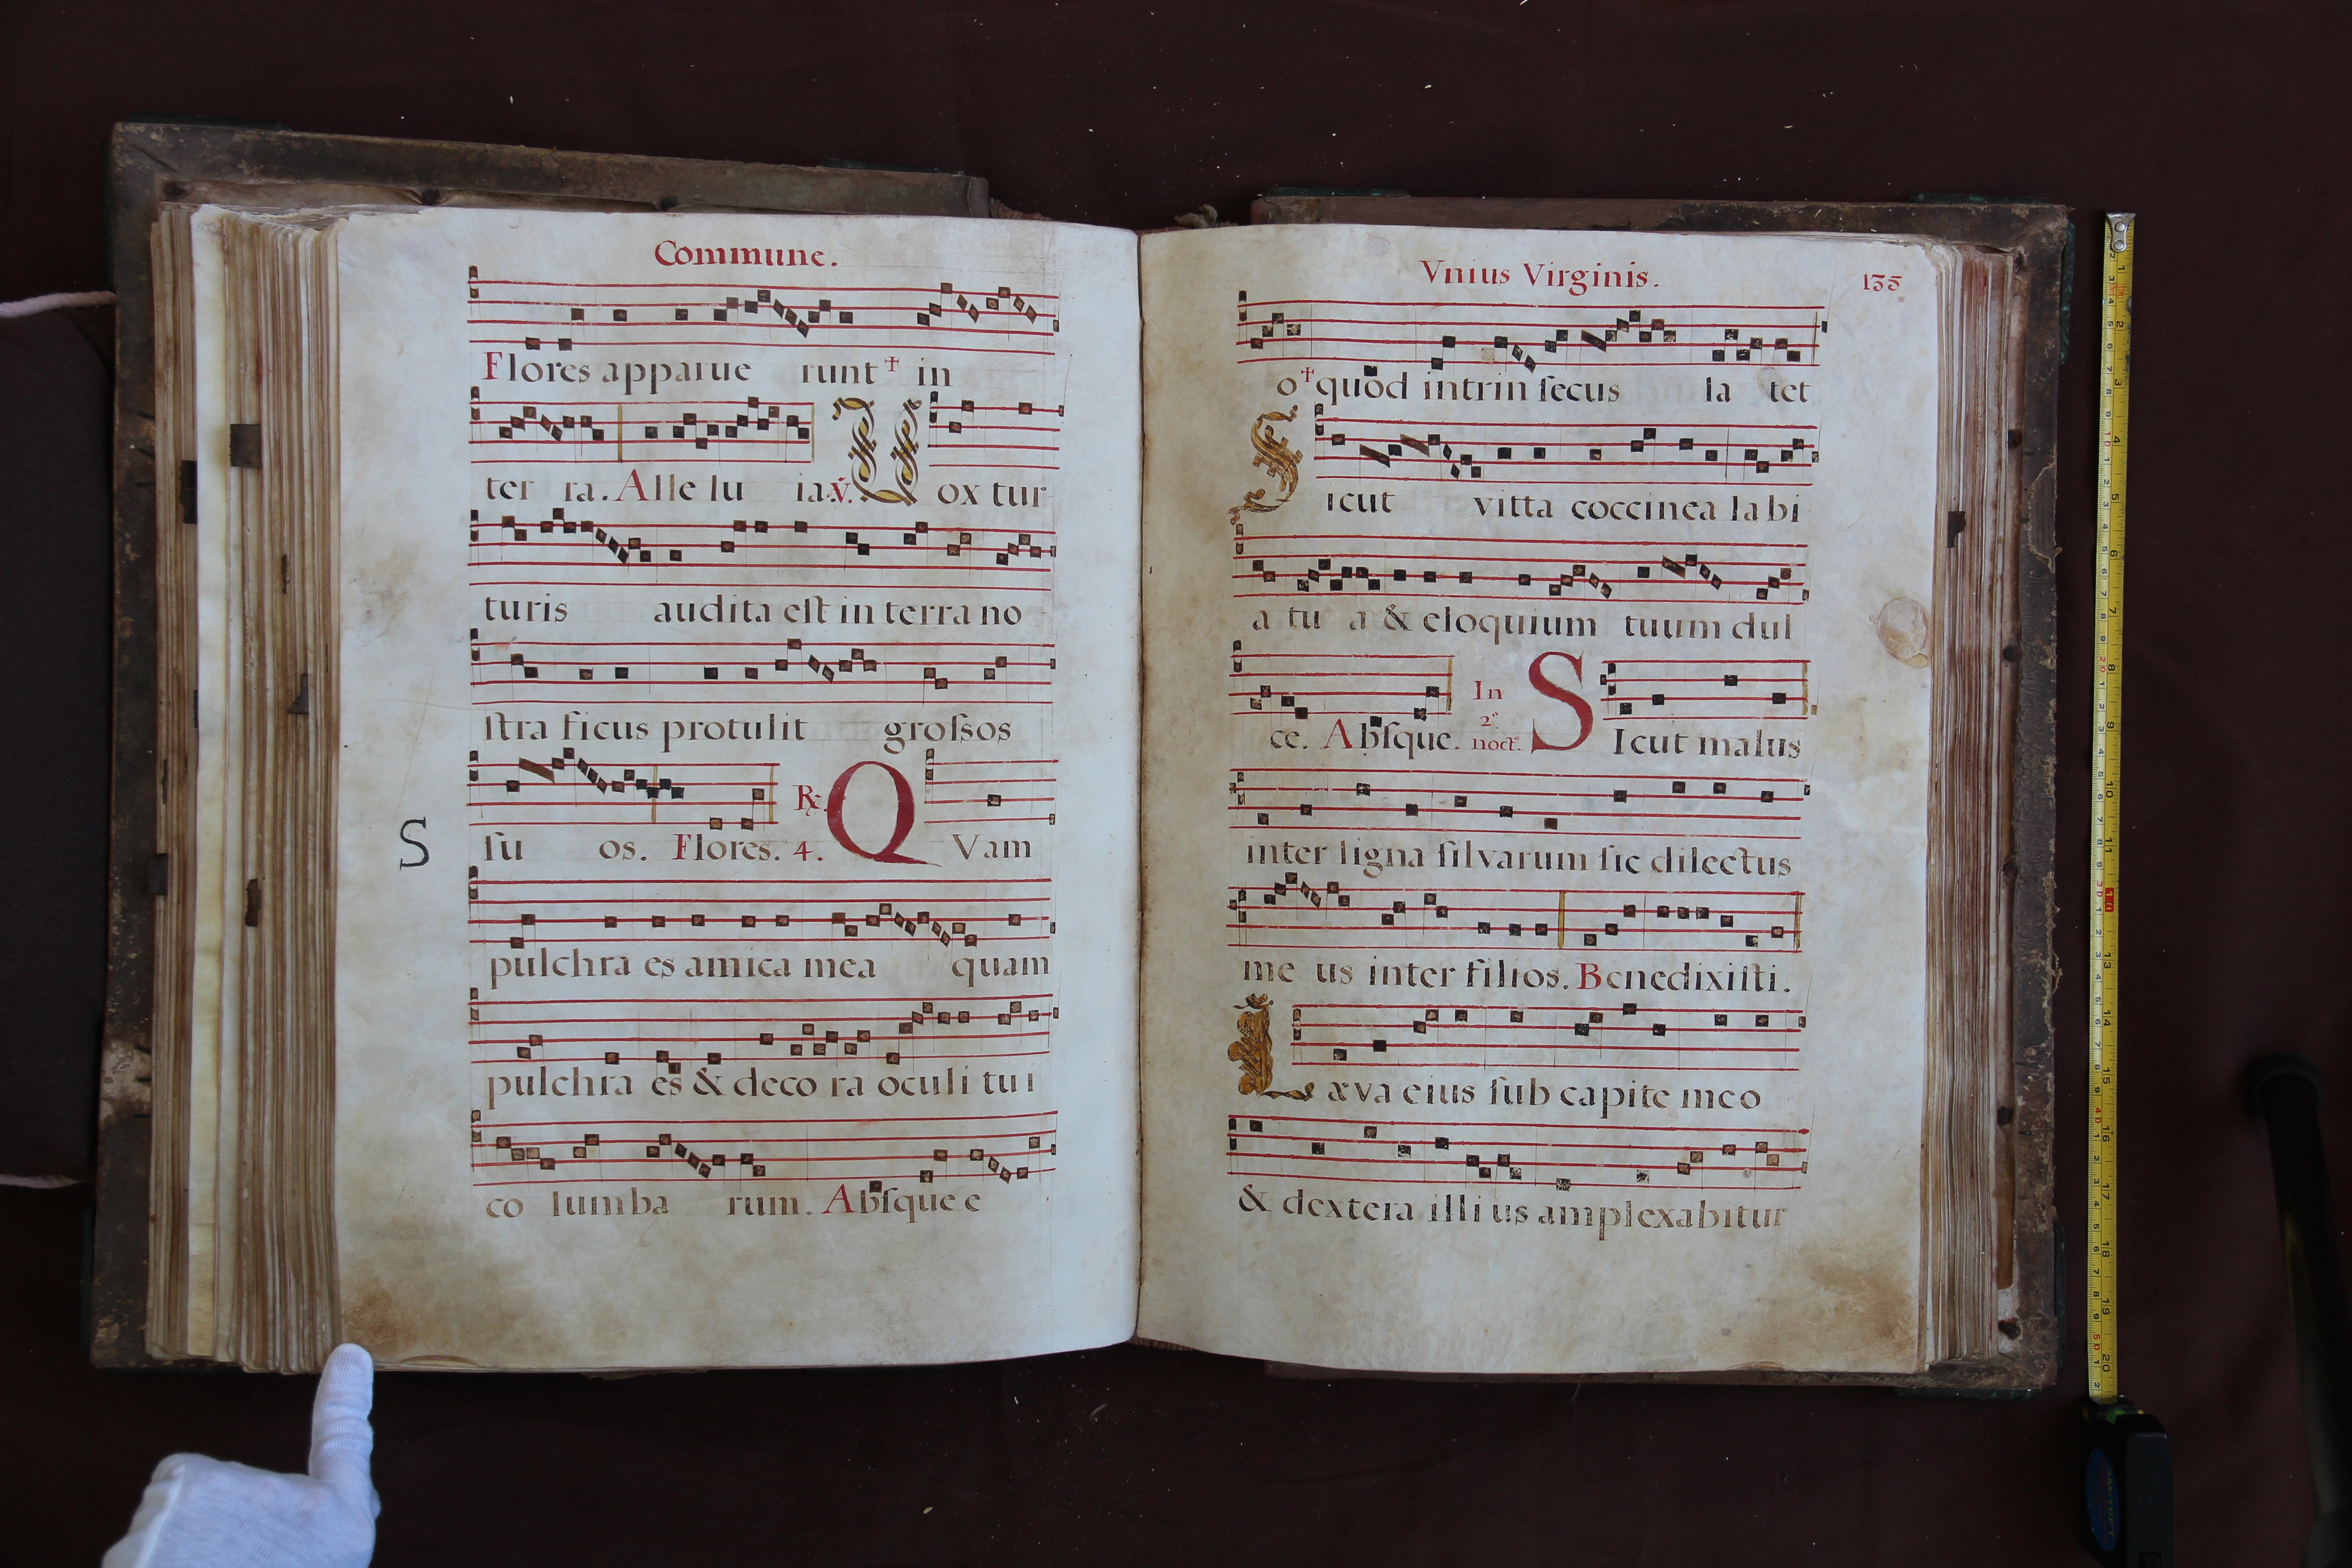 Commune.
Flores apparue runt † in
ter ra. Alle lu ia. ℣. Vox tur
turis audita eſt in terra no
ſtra ficus protulit groſsos
S
ſu os. Flores. ℟. 4. QVam
pulchra es amica mea quam
pulchra es & deco ra oculi tu i
co lumba rum. Abſque e
Vnius Virginis. 135
o † quod intrin ſecus la tet
Sicut vitta coccinea la bi
a tu a & eloquium tuum dul
ce. Abſque. In 2º noct. SIcut malus
inter ligna ſilvarum ſic dilectus
me us inter filios. Benedixiſti.
Læva eius ſub capite meo
& dextera illi us amplexabitur